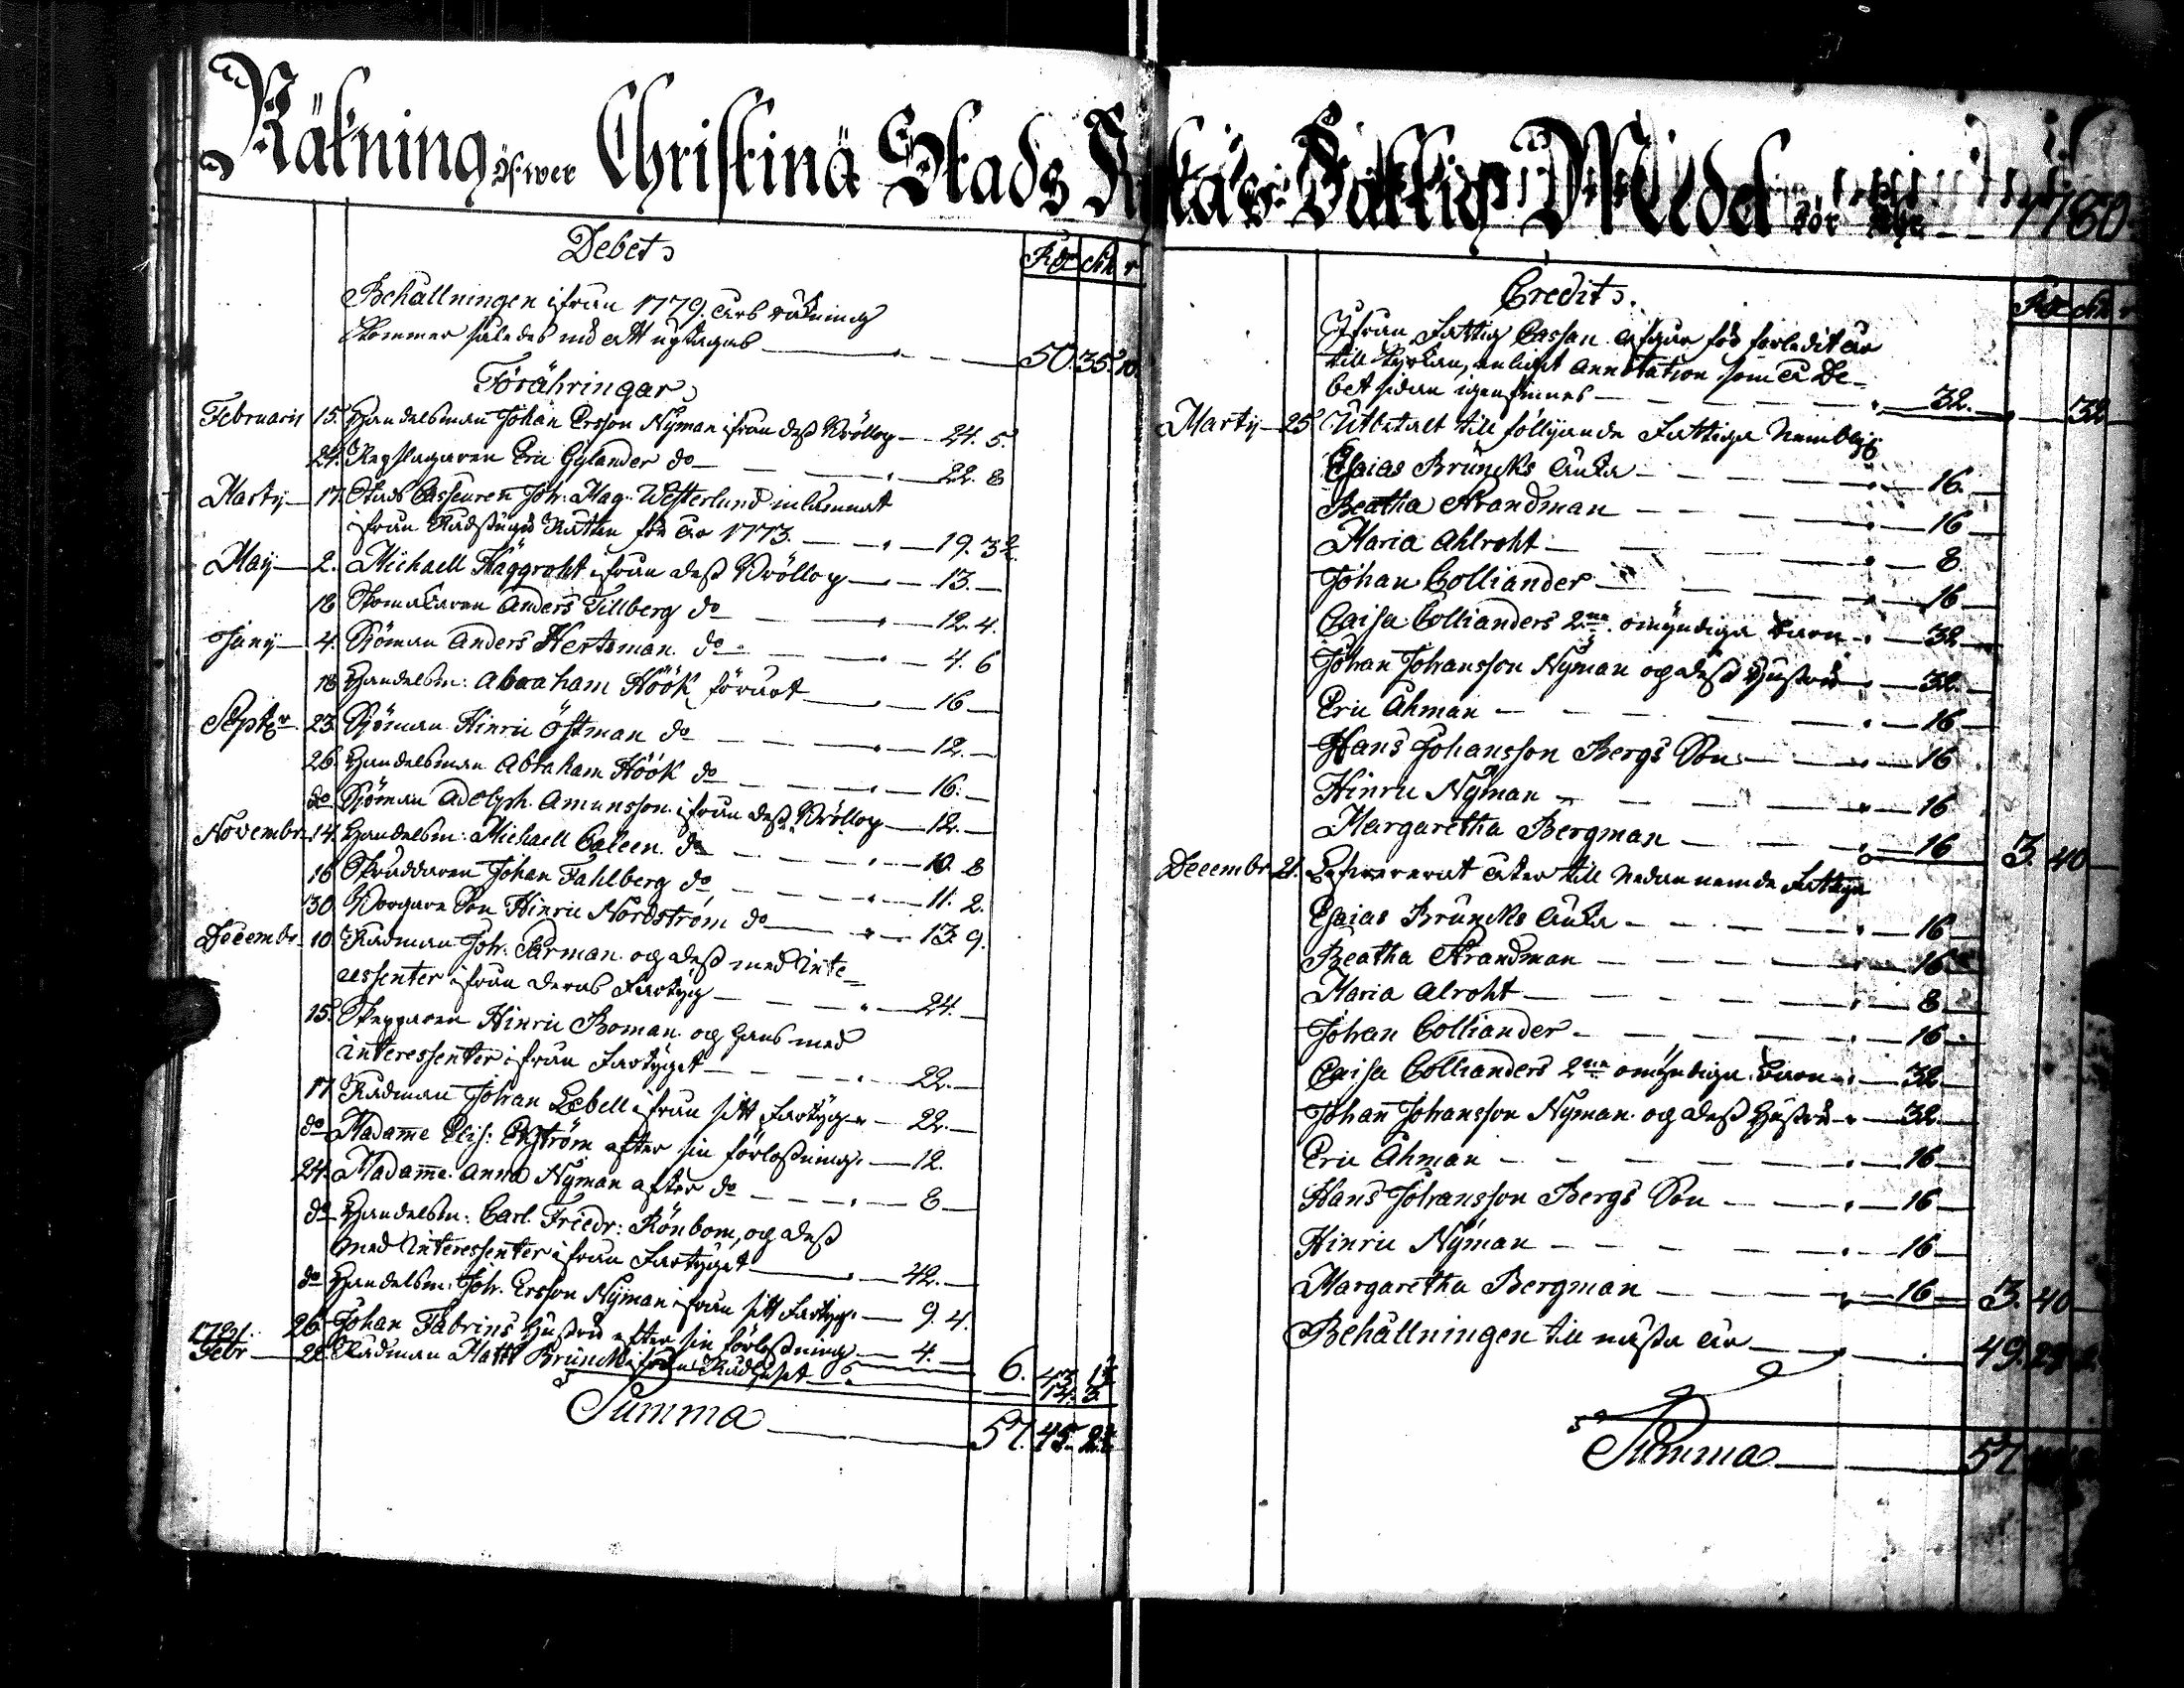 Räkning öfwer Christinä Stads Kyrkas Fattig Medel för Åhr 1780
Debet
Rdr sch r
Behållningen ifrån 1779. års räkning
kommer således nu att uptagas — 50. 35. 10.
Förähringar
Februarii 15. Handelsman Johan Ersson Nyman ifrån dess Bröllop — 24. 5.
24. Repslagaren Eric Gylander do — 22. 8
Marty — 17. Stads Casseuren Joh: Mag: Westerlund inlämnat
ifrån Rådstugu Rätten för år 1773. — 19. 3
Maij — 2. Michaell Häggroht ifrån dess Bröllop — 13. —
18 Skomakaren Anders Tillberg do — 12. 4.
Juny — 4. Sjöman Anders Hertsman do — 4. 6
18 Handelsm: Abraham Höök förärat — 16 —
Septbr 23. Sjöman Hinric Östman do — 12. —
26. Handelsman Abraham Höök do — 16. —
do Sjöman Adolph Amunsson ifrån dess Bröllop — 12. —
Novembr 14. Handelsm: Michaell Caleen do — 10. 8
16 Skräddaren Johan Fahlberg do — 11. 2.
30. Borgare Son Hinric Nordström do — 13. 9.
Decembr 10. Rådman Joh: Parman og dess med Inte=
ressenter ifrån deras Fartyg — 24. —
15. Skepparen Hinric Boman og hans med
interessenter ifrån Fartyget — 22. —
17 Rådman Johan Lebell ifrån sitt Fartyg — 22. —
do Madame Elis: Ekström efter sin förlossning — 12.
24. Madame Anna Nyman efter do — 8 —
do Handelsm: Carl Friedr: Rönbom, og dess
med Interessenter ifrån Fartyget — 42. —
do Handelsm: Joh: Ersson Nyman ifrån sitt Fartyg — 9. 4.
26. Johan Fabrins Hustru efter sin förlossning — 4. — 6. 43. 1
1781. Febr — 28. Rådman Matts Brunck ifrån Rådhuset — 14. 3.
Summa — 57. 45. 2
Credit.
Rdr sch r
Ifrån Fattig Cassan afgår för förledit år
till Kyrkan, enligit Annotation som å De=
bet sidan igenfinnes — 32. — 32
Marty — 25 Utbetalt till följande Fattiga Nembligen
Esaias Bruncks Änka — 16. —
Beatha Strandman — 16 —
Maria Ahlroht — 8.
Johan Colliander — 16 —
Caisa Collianders 2ne omyndiga Barn — 32 —
Johan Johansson Nyman og dess Hustru — 32. —
Eric Åhman — 16 —
Hans Johansson Bergs Son — 16
Hinric Nyman — 16
Margaretha Bergman — 16 — 3. 40 —
Decembr 21. Lefwererat åter till nedannemde Fattiga
Esaias Bruncks Änka — 16 —
Beatha Strandman — 16 —
Maria Alroht — 8
Johan Colliander — 16
Caisa Collianders 2ne omyndiga Barn — 32 —
Johan Johansson Nyman og dess Hustru — 32 —
Eric Åhman — 16 —
Hans Johansson Bergs Son — 16 —
Hinric Nyman — 16 —
Margaretha Bergman — 16 — 3. 40 —
Behållningen till nästa år — 49. 29
Summa — 57